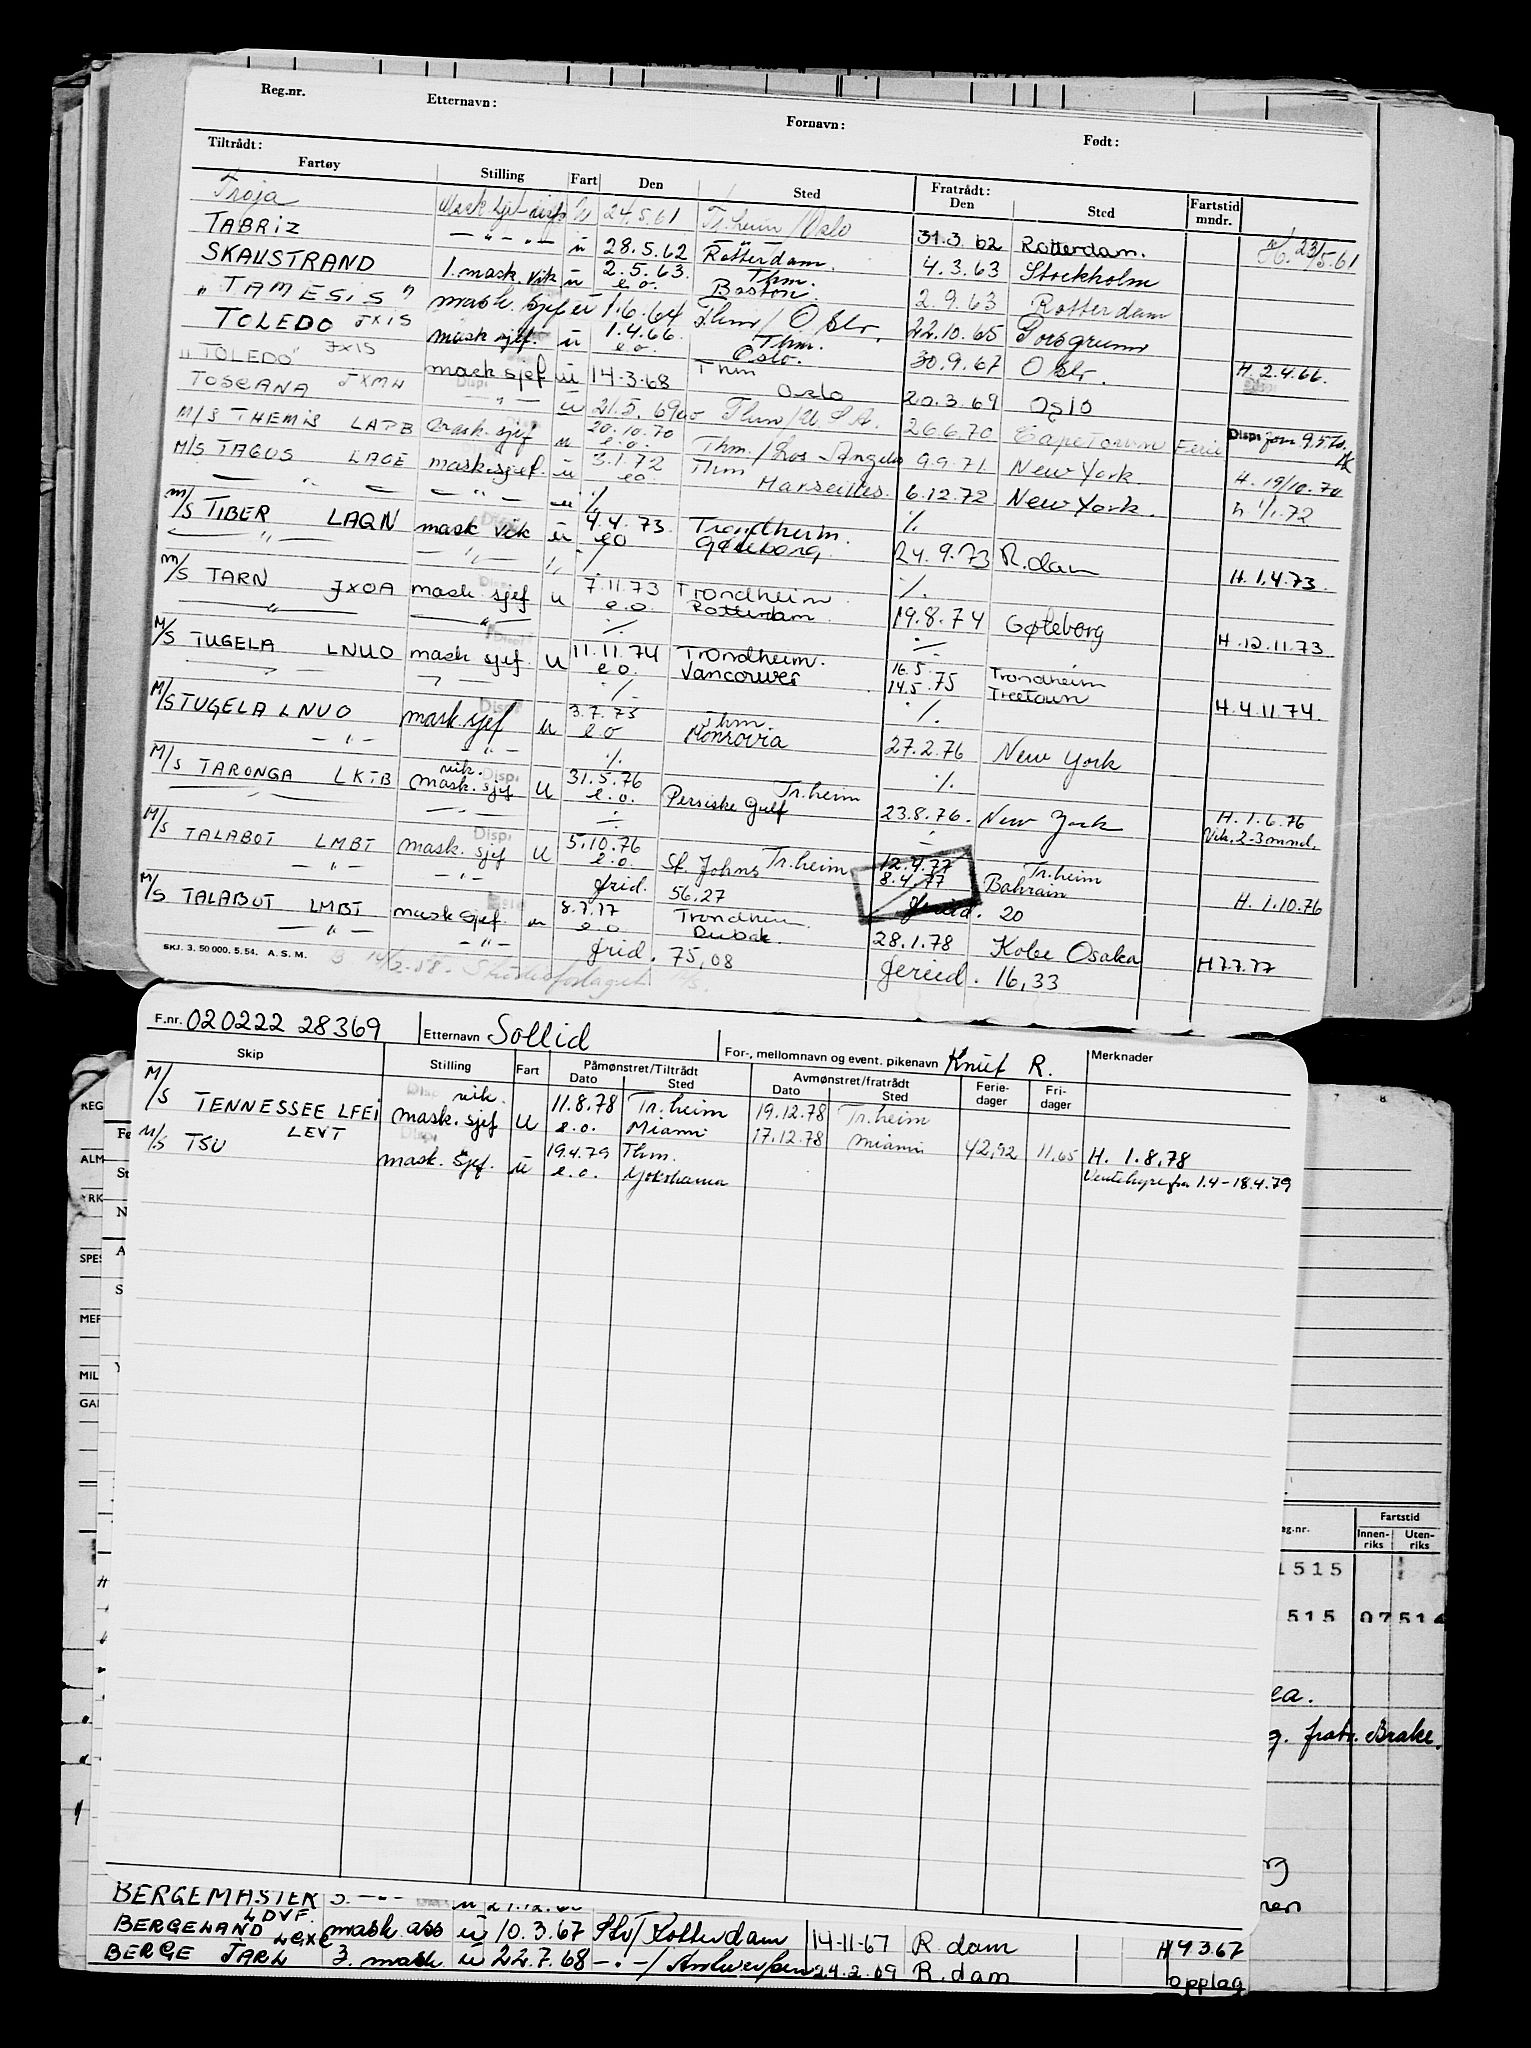 Reg.nr. Etternavn: Fornavn: Født:
Tiltrådt: Fratrådt:
Fartøy Stilling Fart Den Sted Den Sted Fartstid mndr.
Troja ü 24.5.61 Tr.heim/Oslo 31.3.62 Rotterdam. H. 23/5.61
TABRIZ — " — " — ü 28.5.62 Rotterdam. 4.3.63 Stockholm
SKAUSTRAND 1. mask. vik ü 2.5.63. e.o. Thm. Boston. 2.9.63 Rotterdam
" TAMESIS " mask. sjef ü 1.6.64 Thm/Oslo. 22.10.65 Porsgrunn
TOLEDO JXIS mask sjef. ü 1.4.66. e.o. Thm. Oslo. 30.9.67 Oslo. H. 2.4.66.
"TOLEDO" JXIS mask sjef ü 14.3.68 Thm Oslo 20.3.69 Oslo
TOSCANA JXMW — " — ü 21.5.69 Thm/U.S.A. 26.6.70 Capetown Ferie Disp. fom 9.5.70.
M/S THEMIS LATB mask. sjef ü 20.10.70 e.o. Thm./Los Angeles 9.9.71. New York. H. 19/10.70
M/S TAGUS LAOE mask.sjef. ü 3.1.72 e.o. Thm Marseilles. 6.12.72 New York. H. 1/1.72
— " — — " — ü ./. ./.
M/S TIBER LAQN mask vik ü 4.4.73. e.o Trondheim. Gøteborg. 24.9.73 R.dam H. 1.4.73.
— " — — " — " ./. ./.
M/S TARN JXOA mask. sjef u 7.11.73 e.o. Trondheim. Rotterdam. 19.8.74 Gøteborg H. 12.11.73
— " — — " — ./. ./.
M/S TUGELA LNUO mask sjef. U 11.11.74 e.o. Trondheim. Vancouver 16.5. 14.5.75 Trondheim Treetown H. 4.11.74.
— " — — " — ./. ./.
M/S TUGELA LNUO mask.sjef u 3.7.75 e.o Thm. Monrovia 27.2.76 New York
— " — — " — ./. ./.
M/S TARONGA LKTB vik. mask. sjef U 31.5.76 e.o. Tr.heim Persiske Gulf 23.8.76. New York H. 1.6.76 Vik. 2-3 mnd.
— " — — " — ./. ./.
M/S TALABOT LMBT mask. sjef U 5.10.76 e.o. St. Johns Tr.heim 12.4.77 8.4.77 Tr.heim Bahrain H. 1.10.76
— " — — " — frid. 56.27 20
M/S TALABOT LMBT mask sjef. u 8.7.77 e.o Trondheim 28.1.78 Kobe Osaka H 7.7.77
— " — — " — frid. 75,08 feried. 16,33
SKJ. 3. 50 000. 5. 54. A. S. M.
F.nr. 020222 28369 Etternavn Sollid For-, mellomnavn og event. pikenavn Knut R. Merknader
Skip Stilling Fart Påmønstret/Tiltrådt Dato Sted Avmønstret/fratrådt Dato Sted Ferie-dager Fri-dager
M/S TENNESSEE LFEI vik. mask. sjef U 11.8.78 e.o. Tr.heim Miami 19.12.78 17.12.78 Tr.heim Miami 42,92 11,65 H. 1.8.78
M/S TSU LEVT mask. sjef. ü 19.4.79 e.o. Thm. Yokohama Ventehyre fra 1.4-18.4.79
REG
ALM
YRK
SPES
MER
MIL
GAI
7 8
Fartstid
eg.nr. Innen-riks Uten-riks
1515
515 07514
ea.
g. fratr. Brake.
BERGEMASTER 3. — " — ü
BERGELAND LDVF. mask ass ü 10.3.67 Stv/Rotterdam 14-11-67 R.dam H 9 3.67
BERGE JARL 3. mask ü 22.7.68 — " —/Antwerpen 24.2.69 R.dam opplag